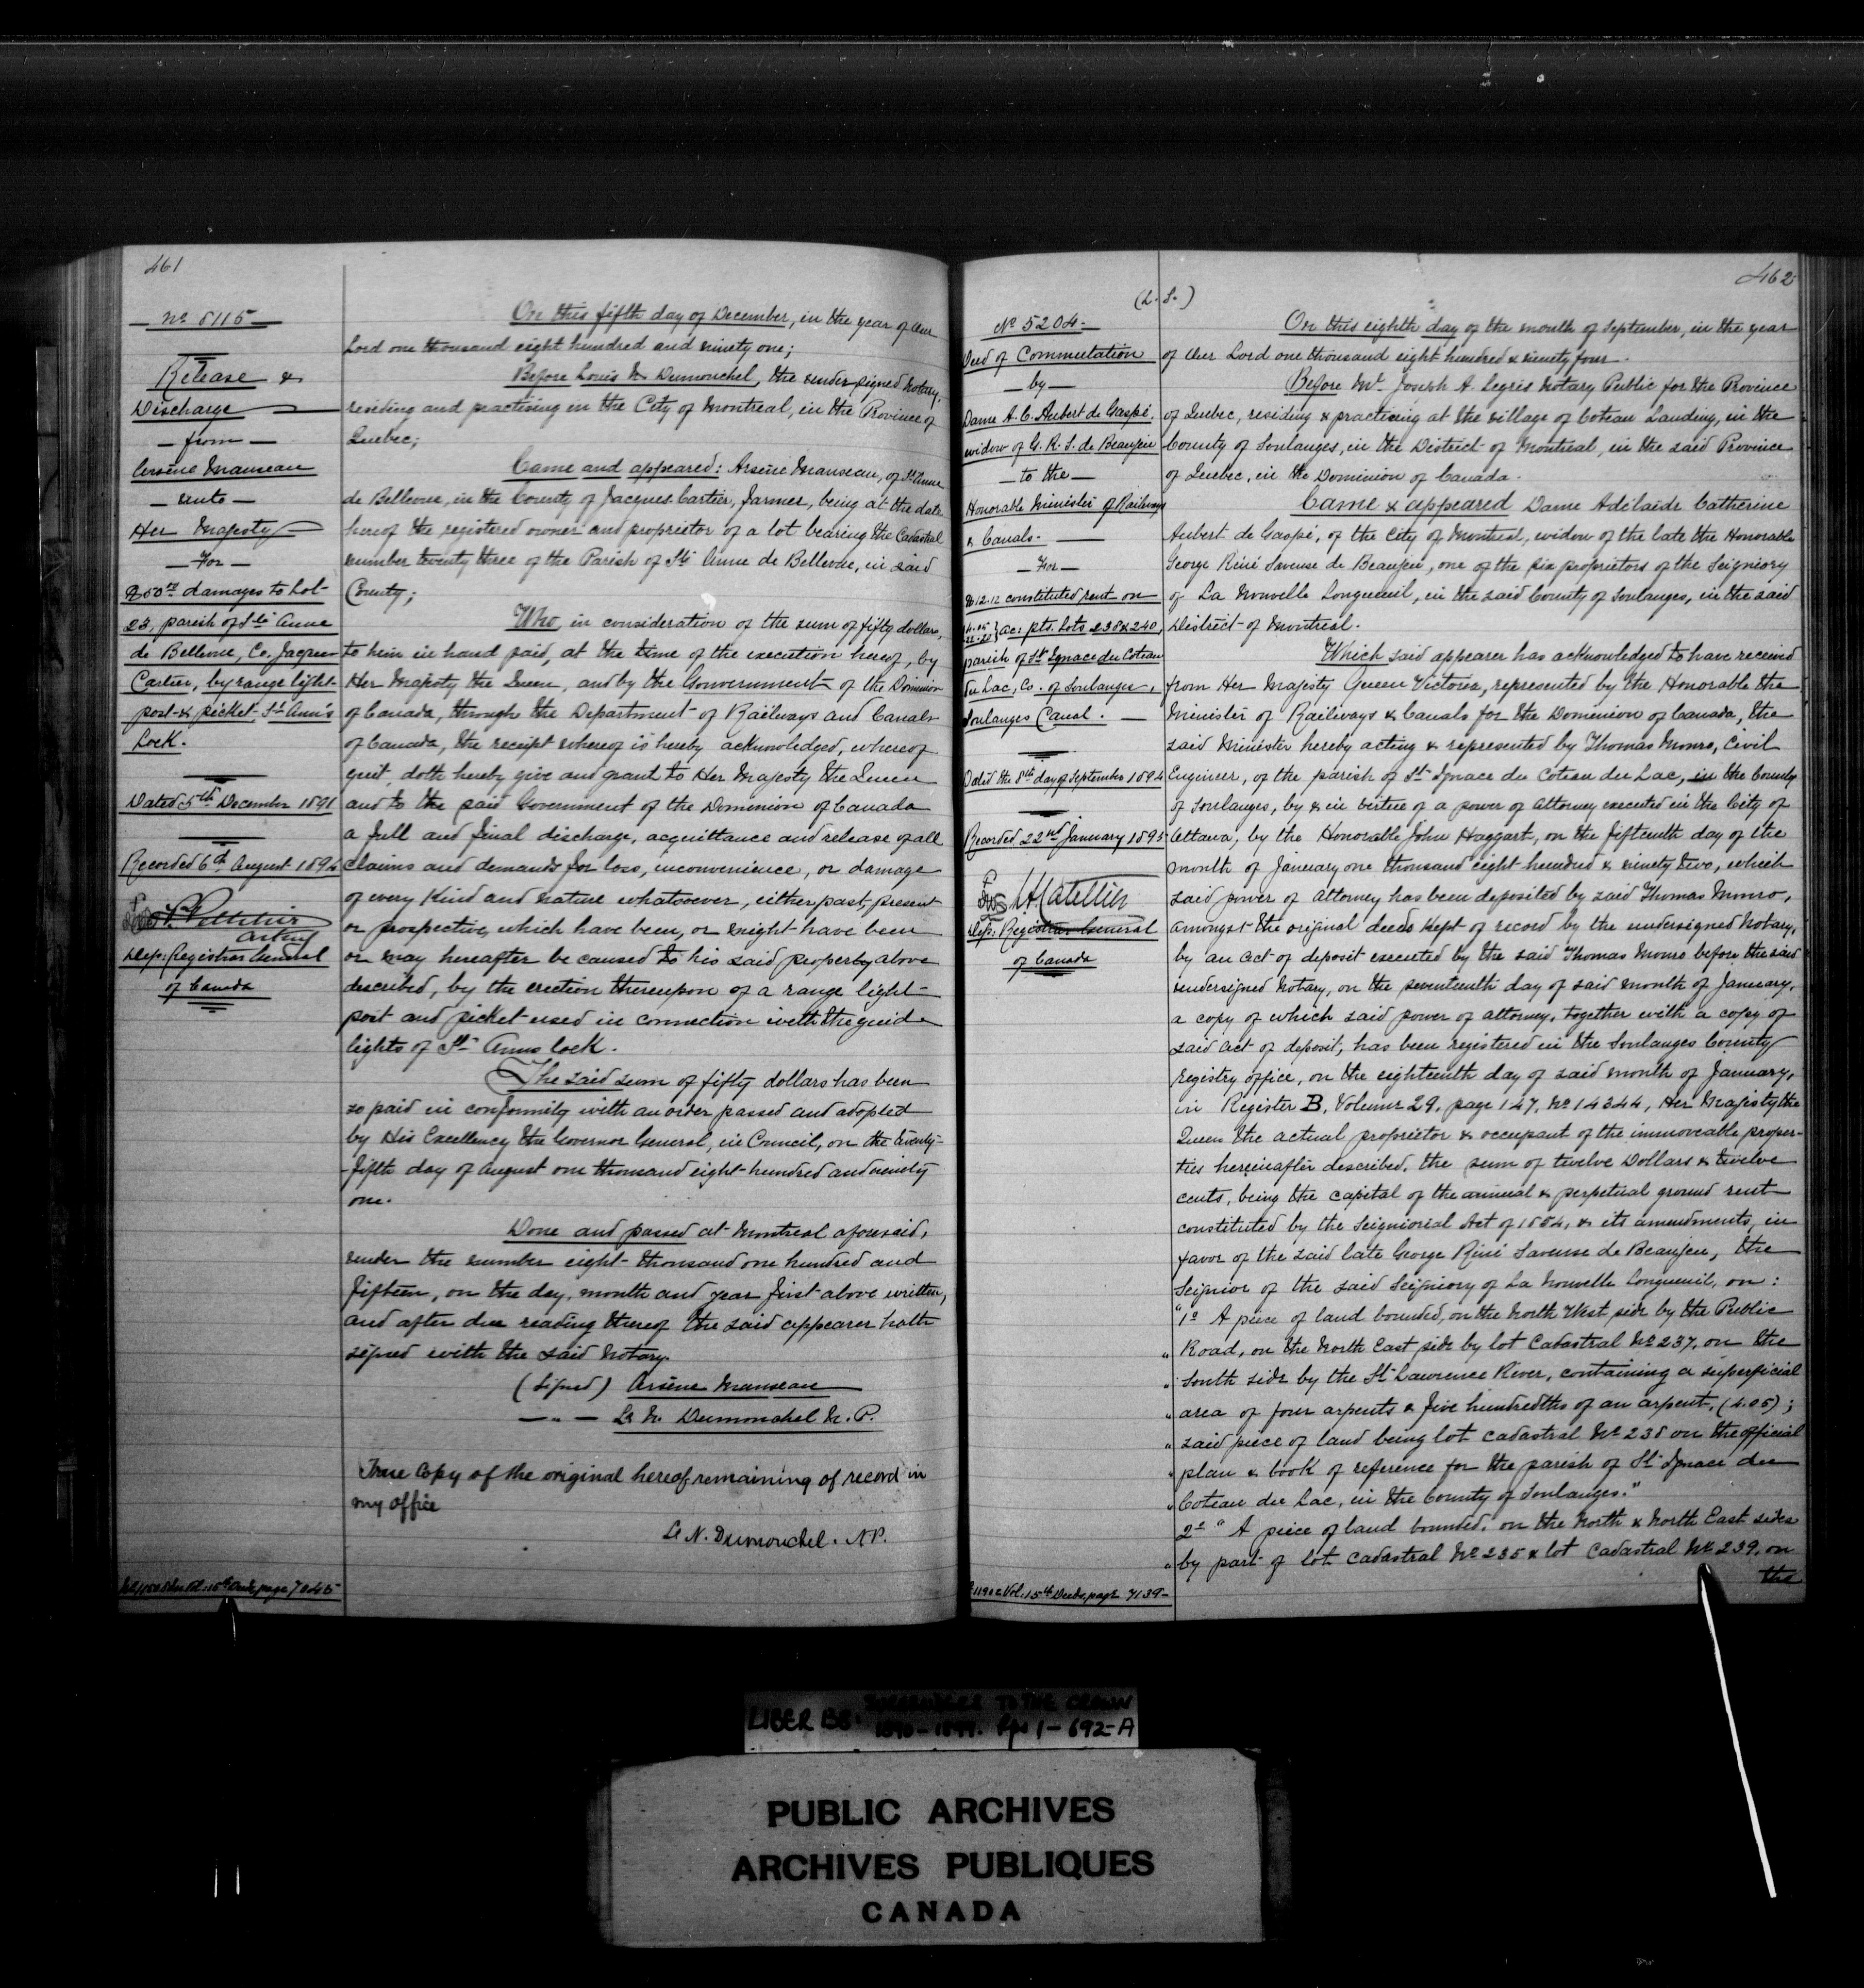 461
No 8115
Release &
Discharge
— from —
Arsène Manseau
— unto —
Her Majesty
— For —
$50.00 damages to Lot
23, parish of Ste Anne
de Bellevue, Co. Jacques
Cartier, by range light
post & picket St Ann's
Lock.
Dated 5th December 1891
Recorded 6th August 1894
P. Pelletier
Acting
Dep: Registrar General
of Canada
On this fifth day of December, in the year of Our
Lord one thousand eight hundred and ninety one;
Before Louis N. Dumouchel, the undersigned Notary,
residing and practising in the City of Montreal, in the Province of
Quebec;
Came and appeared: Arsène Manseau, of St Anne
de Bellevue, in the County of Jacques Cartier, farmer, being at the date
hereof the registered owner and proprietor of a lot bearing the Cadastral
number twenty three of the Parish of Ste Anne de Bellevue, in said
County;
Who, in consideration of the sum of fifty dollars,
to him in hand paid, at the time of the execution hereof, by
Her Majesty the Queen, and by the Gouvernment of the Dominion
of Canada, through the Department of Railways and Canals
of Canada, the receipt whereof is hereby acknowledged, whereof
quit, doth hereby give and grant to Her Majesty the Queen
and to the said Government of the Dominion of Canada
a full and final discharge, acquittance and release of all
claims and demands for loss, inconvenience, or damage
of every kind and nature whatsoever, either past, present
or prospective, which have been, or might have been
or may hereafter be caused to his said property above
described, by the erection thereupon of a range light
post and picket used in connection with the guide
lights of St Anns lock.
The said sum of fifty dollars has been
so paid in conformity with an order passed and adopted
by His Excellency the Governor General, in Council, on the twenty-
-fifth day of August one thousand eight hundred and ninety
one.
Done and passed at Montreal aforesaid,
under the number eight thousand one hundred and
fifteen, on the day, month and year first above written,
and after due reading thereof the said appearer hath
signed with the said Notary.
(Signed) Arsène Manseau
— " — Ls N. Dumouchel N. P.
True Copy of the original hereof remaining of record in
my office
Ls N. Dumouchel. N.P.
Vol: 15th Deeds, page 7045
462
(L. S.)
No 5204
Deed of Commutation
— by —
Dame A. C. Aubert de Gaspé,
widow of G. R. S. de Beaujeu
— to the —
Honorable Minister of Railways
& Canals.
— For —
$12.12 constituted rent on
ac: pts. Lots 238 & 240,
parish of St Ignace du Coteau
du Lac, Co. of Soulanges,
Soulanges Canal.
Dated the 8th day of September 1894
Recorded 22nd January 1895
Dep: Registrar General
of Canada
On this eighth day of the month of September, in the year
of Our Lord one thousand eight hundred & ninety four.
Before Mr. Joseph A. Legris Notary Public for the Province
of Quebec, residing & practicing at the village of Coteau Landing, in the
County of Soulanges, in the District of Montreal, in the said Province
of Quebec, in the Dominion of Canada.
Came & appeared Dame Adélaïde Catherine
Aubert de Gaspé, of the City of Montreal, widow of the late the Honorable
George Réné Saveuse de Beaujeu, one of the six proprietors of the Seigniory
of La Nouvelle Longueuil, in the said County of Soulanges, in the said
District of Montreal.
Which said appearer has acknowledged to have received
from Her Majesty Queen Victoria, represented by the Honorable the
Minister of Railways & Canals for the Dominion of Canada, the
said Minister hereby acting & represented by Thomas Monro, Civil
Engineer, of the parish of St Ignace du Coteau du Lac, in the County
of Soulanges, by & in virtue of a power of attorney executed in the City of
Ottawa, by the Honorable John Haggart, on the fifteenth day of the
month of January one thousand eight hundred & ninety two, which
said power of attorney has been deposited by said Thomas Monro,
amongst the original deeds kept of record by the undersigned Notary,
by an act of deposit executed by the said Thomas Monro before the said
undersigned Notary, on the seventeenth day of said month of January,
a copy of which said power of attorney, together with a copy of
said act of deposit, has been registered in the Soulanges County
registry office, on the eighteenth day of said month of January,
in Register B, Volume 29, page 147, No 14344, Her Majesty the
Queen the actual proprietor & occupant of the immoveable proper-
ties hereinafter described, the sum of twelve Dollars & twelve
cents, being the capital of the annual & perpetual ground rent
constituted by the Seigniorial Act of 1854, & its amendments, in
favor of the said late George Réné Saveuse de Beaujeu, the
Seignior of the said Seigniory of La Nouvelle Longueuil, on:
"1o A piece of land bounded, on the North West side by the Public
" Road, on the North East side by lot Cadastral No 237, on the
" South side by the St Lawrence River, containing a superficial
" area of four arpents & five hundredths of an arpent, (4.05);
" said piece of land being lot cadastral No 238 on the official
" plan & book of reference for the parish of St Ignace du
" Coteau du Lac, in the County of Soulanges."
2o " A piece of land bounded, on the North & North East sides
" by part of lot cadastral No 235 & lot Cadastral No 239, on
the
Vol: 15th Deeds, page 7139
LIBER BB: SURRENDERS TO THE CROWN
1890-1899. Pgs 1-692-A
PUBLIC ARCHIVES
ARCHIVES PUBLIQUES
CANADA